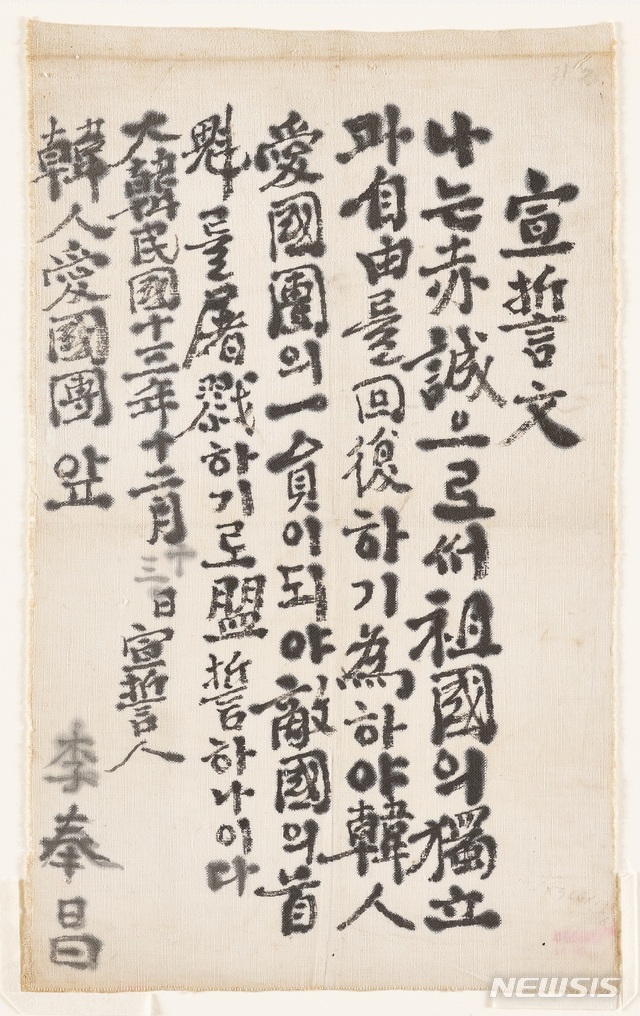 宣誓文
나는赤誠으로써祖國의獨立
과自由를回復하기為하야韓人
愛國團의一員이되야敵國의首
魁를屠戮하기로盟誓하나이다
大韓民國十三年十二月十三日宣誓人
韓人愛國團앞 李奉昌
NEWSIS